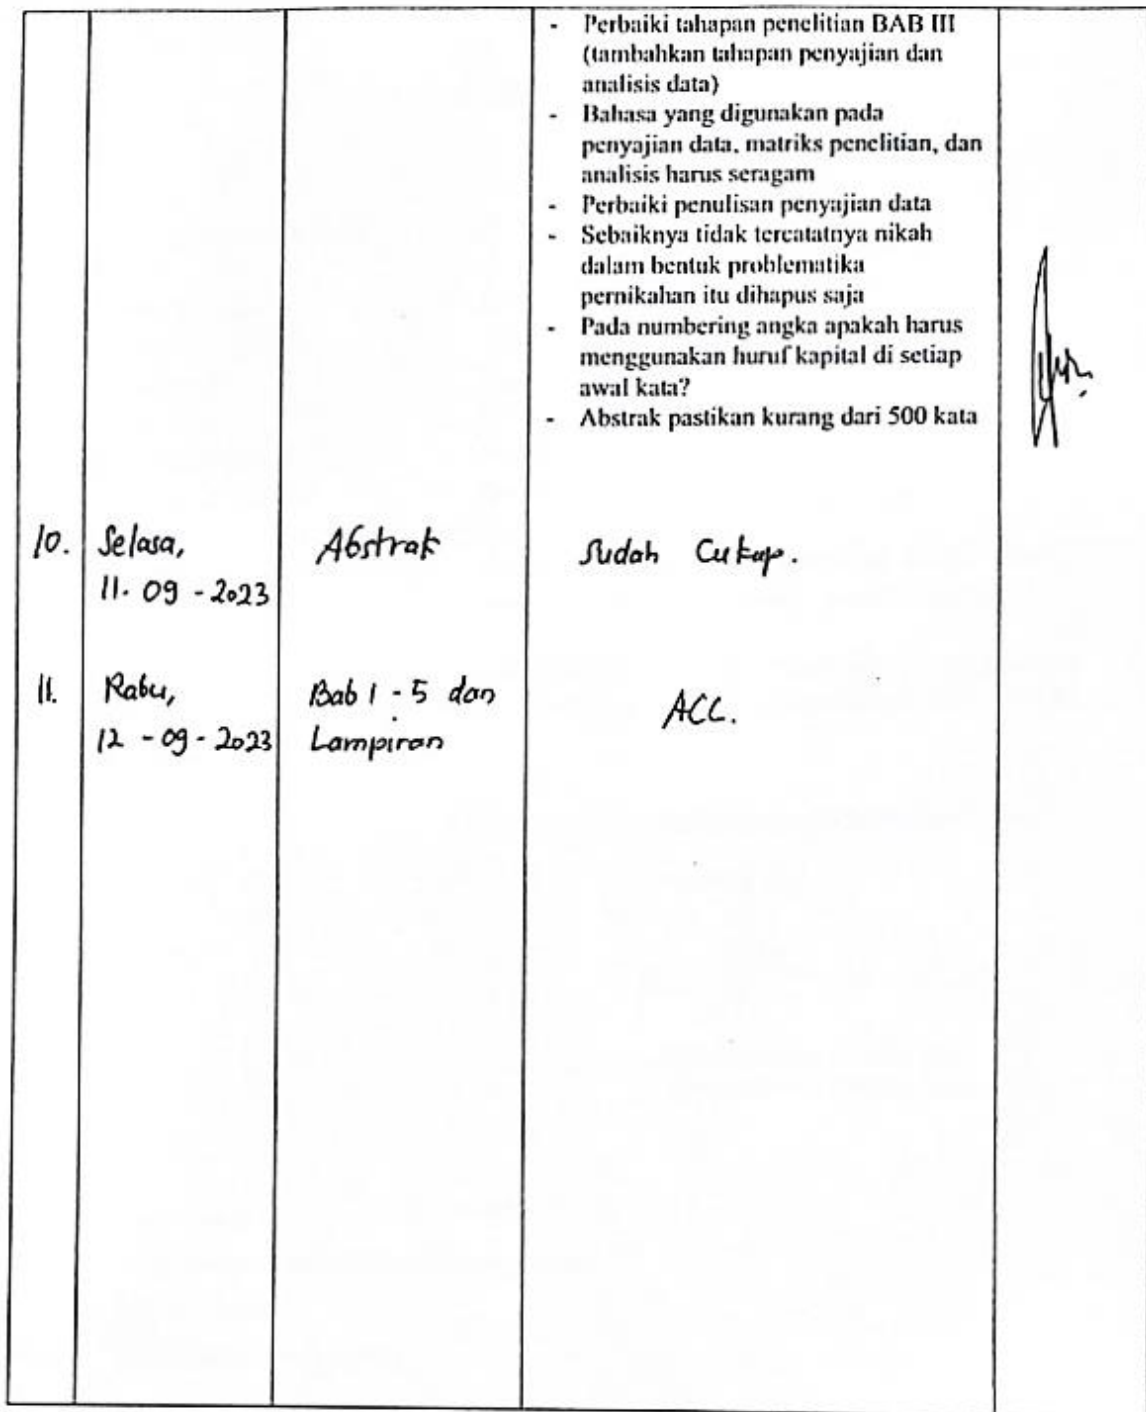 - Perbaiki tahapan penelitian BAB III
(tambahkan tahapan penyajian dan
analisis data)
- Bahasa yang digunakan pada
penyajian data, matriks penelitian, dan
analisis harus seragam
- Perbaiki penulisan penyajian data
- Sebaiknya tidak tercatatnya nikah
dalam bentuk problematika
pernikahan itu dihapus saja
- Pada numbering angka apakah harus
menggunakan huruf kapital di setiap
awal kata?
- Abstrak pastikan kurang dari 500 kata
10. Selasa, Abstrak Sudah Cukup.
11. 09 - 2023
11. Rabu, Bab 1 - 5 dan ACC.
12 - 09 - 2023 Lampiran